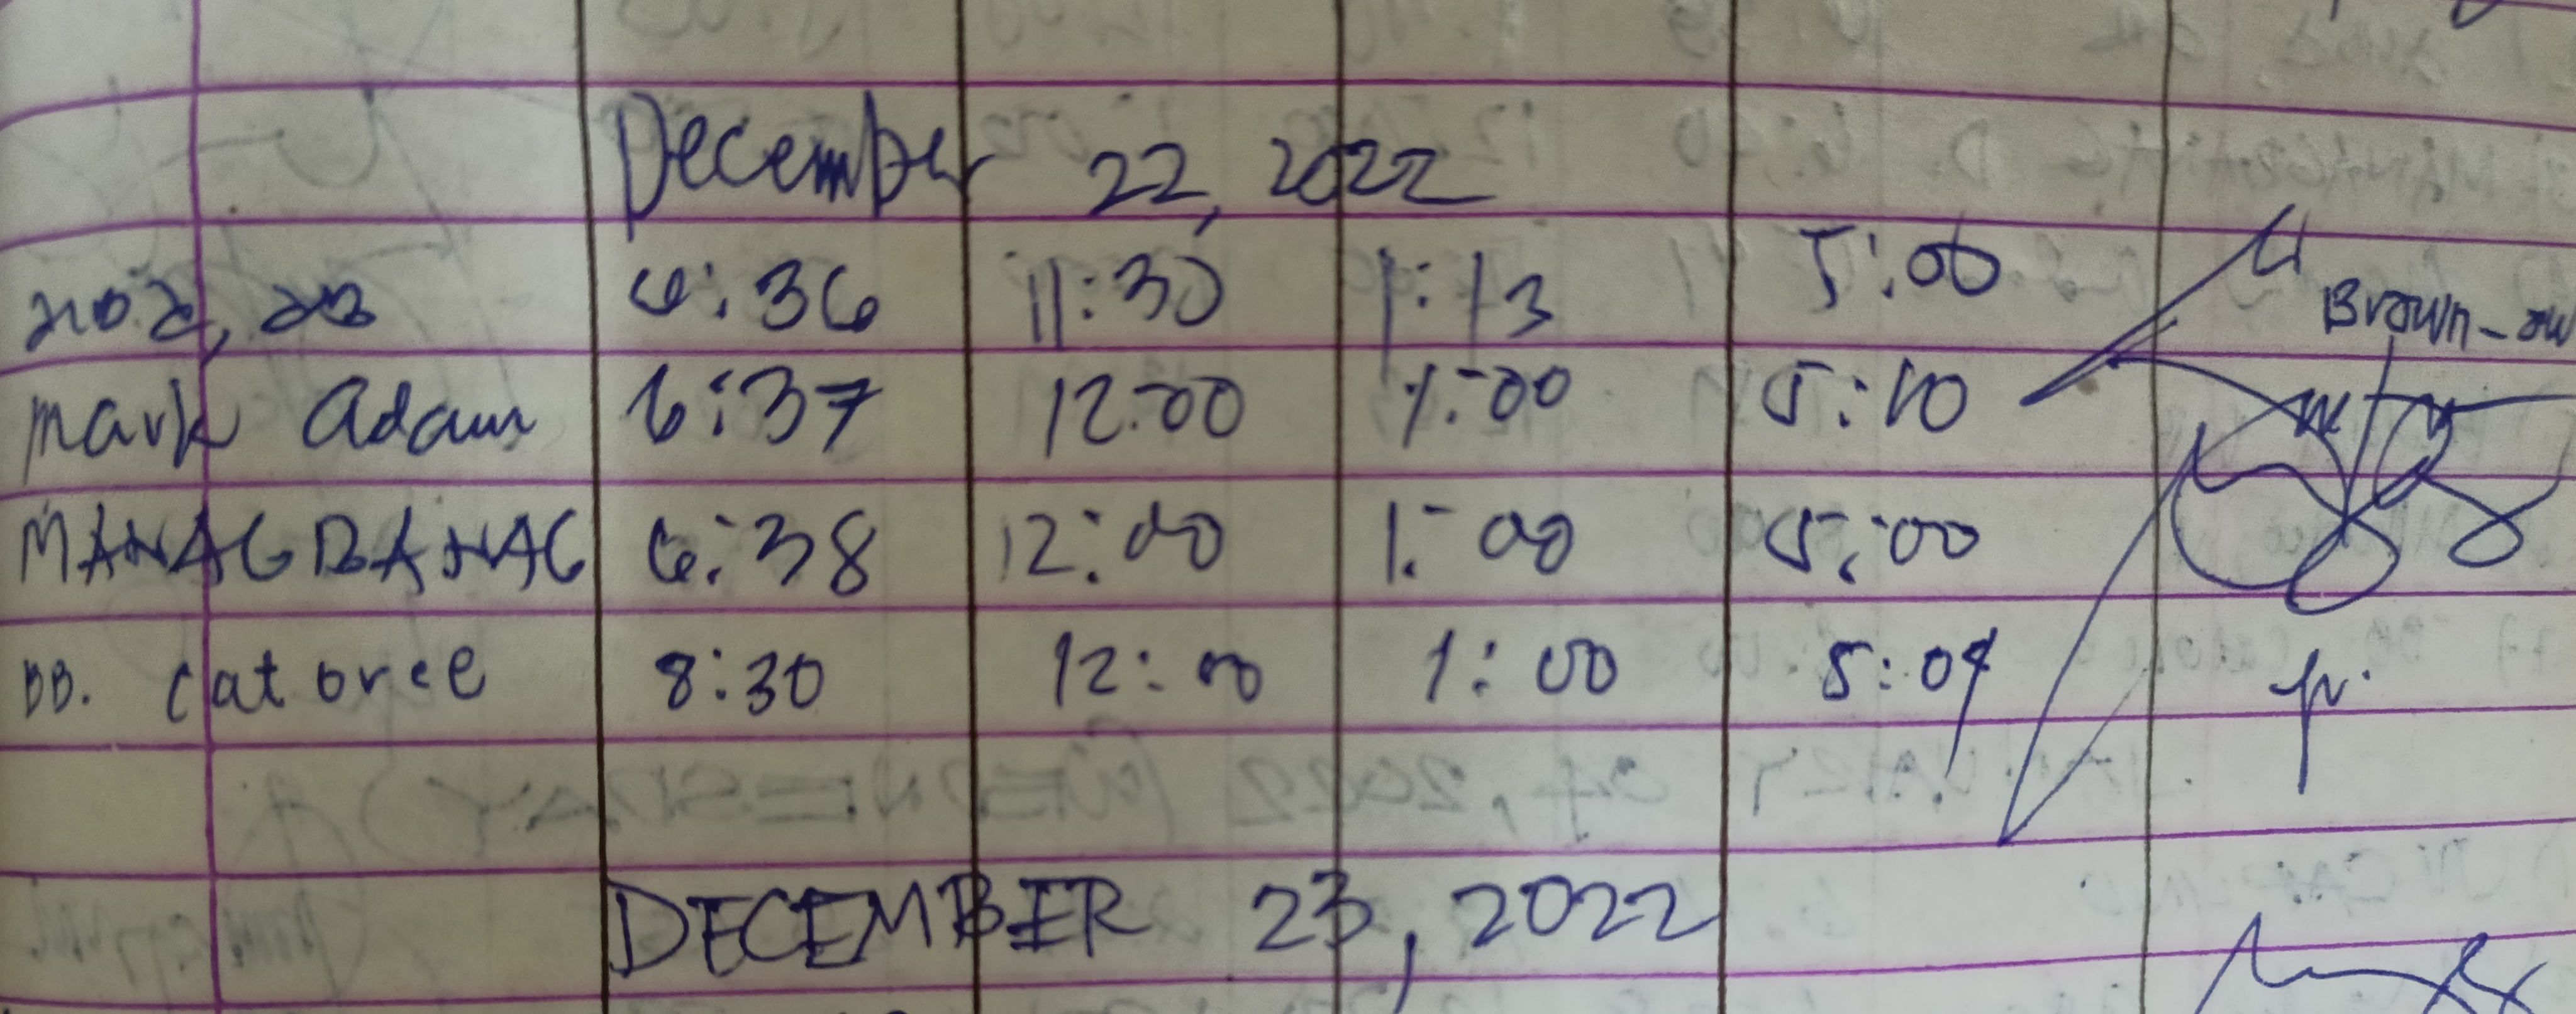 December 22, 2022
6:36 11:30 1:13 5:00
Brown-ou
Mark Adam 6:37 12:00 1:00 5:10
MANAGBANAG 6:38 12:00 1:00 5:00
BB. Catorce 8:30 12:00 1:00 5:04
DECEMBER 23, 2022